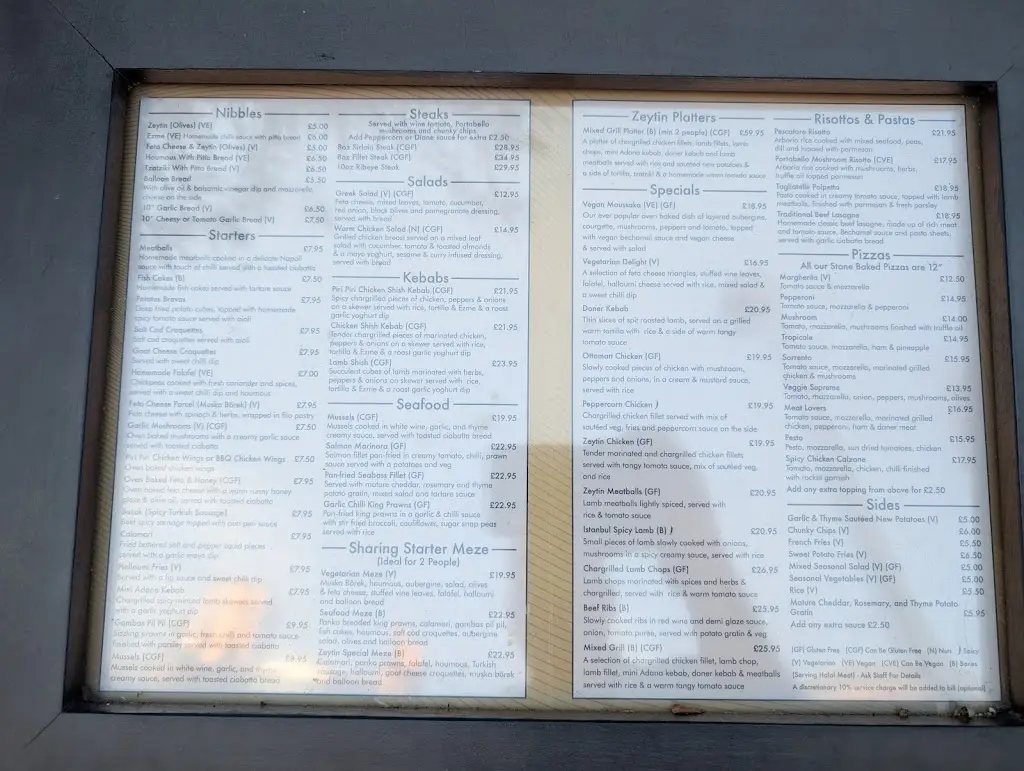 Nibbles
Zeytin (Olives) (VE) £5.00
Ezme (VE) Homemade chilli sauce with pitta bread £6.00
Feta Cheese & Zeytin (Olives) (V) £5.00
Houmous With Pitta Bread (VE) £6.50
Tzatziki With Pitta Bread (V) £6.50
Balloon Bread £5.50
With olive oil & balsamic vinegar dip and mozzarella
cheese on the side
10" Garlic Bread (V) £6.50
10" Cheesy or Tomato Garlic Bread (V) £7.50
Starters
Meatballs £7.95
Homemade meatballs cooked in a delicate Napoli
sauce with touch of chilli served with a toasted ciabatta
Fish Cakes (B) £7.50
Homemade fish cakes served with tartare sauce
Patatas Bravas £7.95
Deep fried potato cubes, topped with homemade
spicy tomato sauce served with aioli
Salt Cod Croquettes £7.95
Salt cod croquettes served with aioli
Goat Cheese Croquettes £7.95
Served with sweet chilli dip
Homemade Falafel (VE) £7.00
Chickpeas cooked with fresh coriander and spices,
served with a sweet chilli dip and houmous
Feta Cheese Parsel (Muska Börek) (V) £7.95
Feta cheese with spinach & herbs, wrapped in filo pastry
Garlic Mushrooms (V) (CGF) £7.50
Oven baked mushrooms with a creamy garlic sauce
served with toasted ciabatta
Piri Piri Chicken Wings or BBQ Chicken Wings £7.50
Oven baked chicken wings
Oven Baked Feta & Honey (CGF) £7.95
Oven baked feta cheese with a warm runny honey
glaze & olive oil, served with toasted ciabatta
Sucuk (Spicy Turkish Sausage) £7.95
Beef spicy sausage topped with piri piri sauce
Calamari £7.95
Fried battered salt and pepper squid pieces
served with a garlic mayo dip
Halloumi Fries (V) £7.95
Served with a fig sauce and sweet chilli dip
Mini Adana Kebab £7.95
Chargrilled spicy minced lamb skewers served
with a garlic yoghurt dip
Gambas Pil Pil (CGF) £9.95
Sizzling prawns in garlic, fresh chilli and tomato sauce
finished with parsley served with toasted ciabatta
Mussels (CGF) £9.95
Mussels cooked in white wine, garlic, and thyme
creamy sauce, served with toasted ciabatta bread
Steaks
Served with vine tomato, Portabello
mushrooms and chunky chips
Add Peppercorn or Diane sauce for extra £2.50
8oz Sirloin Steak (CGF) £28.95
8oz Fillet Steak (CGF) £34.95
10oz Ribeye Steak £29.95
Salads
Greek Salad (V) (CGF) £12.95
Feta cheese, mixed leaves, tomato, cucumber,
red onion, black olives and pomegranate dressing,
served with bread
Warm Chicken Salad (N) (CGF) £14.95
Grilled chicken breast served on a mixed leaf
salad with cucumber, tomato & toasted almonds
& a mayo yoghurt, sesame & curry infused dressing,
served with bread
Kebabs
Piri Piri Chicken Shish Kebab (CGF) £21.95
Spicy chargrilled pieces of chicken, peppers & onions
on a skewer served with rice, tortilla & Ezme & a roast
garlic yoghurt dip
Chicken Shish Kebab (CGF) £21.95
Tender chargrilled pieces of marinated chicken,
peppers & onions on a skewer served with rice,
tortilla & Ezme & a roast garlic yoghurt dip
Lamb Shish (CGF) £23.95
Succulent cubes of lamb marinated with herbs,
peppers & onions on skewer served with rice,
tortilla & Ezme & a roast garlic yoghurt dip
Seafood
Mussels (CGF) £19.95
Mussels cooked in white wine, garlic, and thyme
creamy sauce, served with toasted ciabatta bread
Salmon Marinara (GF) £22.95
Salmon fillet pan-fried in creamy tomato, chilli, prawn
sauce served with a potatoes and veg
Pan-fried Seabass Fillet (GF) £22.95
Served with mature cheddar, rosemary and thyme
potato gratin, mixed salad and tartare sauce
Garlic Chilli King Prawns (GF) £22.95
Pan-fried king prawns in a garlic & chilli sauce
with stir fried broccoli, cauliflower, sugar snap peas
served with rice
Sharing Starter Meze
(Ideal for 2 People)
Vegetarian Meze (V) £19.95
Muska Börek, houmous, aubergine, salad, olives
& feta cheese, stuffed vine leaves, falafel, halloumi
and balloon bread
Seafood Meze (B) £22.95
Panko breaded king prawns, calamari, gambas pil pil,
fish cakes, houmous, salt cod croquettes, aubergine
salad, olives and balloon bread
Zeytin Special Meze (B) £22.95
Calamari, panko prawns, falafel, houmous, Turkish
sausage, halloumi, goat cheese croquettes, muska börek
and balloon bread
Zeytin Platters
Mixed Grill Platter (B) (min 2 people) (CGF) £59.95
A platter of chargrilled chicken fillets, lamb fillets, lamb
chops, mini Adana kebab, doner kebab and lamb
meatballs served with rice and sautéed new potatoes &
a side of tortilla, tzatziki & a homemade warm tomato sauce
Specials
Vegan Moussaka (VE) (GF) £18.95
Our ever popular oven baked dish of layered aubergine,
courgette, mushrooms, peppers and tomato, topped
with vegan bechamel sauce and vegan cheese
& served with salad
Vegetarian Delight (V) £16.95
A selection of feta cheese triangles, stuffed vine leaves,
falafel, halloumi cheese served with rice, mixed salad &
a sweet chilli dip
Doner Kebab £20.95
Thin slices of spit roasted lamb, served on a grilled
warm tortilla with rice & a side of warm tangy
tomato sauce
Ottoman Chicken (GF) £19.95
Slowly cooked pieces of chicken with mushroom,
peppers and onions, in a cream & mustard sauce,
served with rice
Peppercorn Chicken £19.95
Chargrilled chicken fillet served with mix of
sautéed veg, fries and peppercorn sauce on the side
Zeytin Chicken (GF) £19.95
Tender marinated and chargrilled chicken fillets
served with tangy tomato sauce, mix of sautéed veg,
and rice
Zeytin Meatballs (GF) £20.95
Lamb meatballs lightly spiced, served with
rice & tomato sauce
Istanbul Spicy Lamb (B) £20.95
Small pieces of lamb slowly cooked with onions,
mushrooms in a spicy creamy sauce, served with rice
Chargrilled Lamb Chops (GF) £26.95
Lamb chops marinated with spices and herbs &
chargrilled, served with rice & warm tomato sauce
Beef Ribs (B) £25.95
Slowly cooked ribs in red wine and demi glaze sauce,
onion, tomato purée, served with potato gratin & veg
Mixed Grill (B) (CGF) £25.95
A selection of chargrilled chicken fillet, lamb chop,
lamb fillet, mini Adana kebab, doner kebab & meatballs
served with rice & a warm tangy tomato sauce
Risottos & Pastas
Pescatore Risotto £21.95
Arborio rice cooked with mixed seafood, peas,
dill and finished with parmesan
Portabello Mushroom Risotto (CVE) £17.95
Arborio rice cooked with mushrooms, herbs,
truffle oil topped parmesan
Tagliatelle Polpetta £18.95
Pasta cooked in creamy tomato sauce, topped with lamb
meatballs, finished with parmesan & fresh parsley
Traditional Beef Lasagne £18.95
Homemade classic beef lasagne, made up of rich meat
and tomato sauce, Bechamel sauce and pasta sheets,
served with garlic ciabatta bread
Pizzas
All our Stone Baked Pizzas are 12"
Margherita (V) £12.50
Tomato sauce & mozzarella
Pepperoni £14.95
Tomato sauce, mozzarella & pepperoni
Mushroom £14.00
Tomato, mozzarella, mushrooms finished with truffle oil
Tropicale £14.95
Tomato sauce, mozzarella, ham & pineapple
Sorrento £15.95
Tomato sauce, mozzarella, marinated grilled
chicken & mushrooms
Veggie Supreme £13.95
Tomato, mozzarella, onion, peppers, mushrooms, olives
Meat Lovers £16.95
Tomato sauce, mozzarella, marinated grilled
chicken, pepperoni, ham & doner meat
Pesto £15.95
Pesto, mozzarella, sun dried tomatoes, chicken
Spicy Chicken Calzone £17.95
Tomato, mozzarella, chicken, chilli finished
with rocket garnish
Add any extra topping from above for £2.50
Sides
Garlic & Thyme Sautéed New Potatoes (V) £5.00
Chunky Chips (V) £6.00
French Fries (V) £5.50
Sweet Potato Fries (V) £6.50
Mixed Seasonal Salad (V) (GF) £5.00
Seasonal Vegetables (V) (GF) £5.00
Rice (V) £5.50
Mature Cheddar, Rosemary, and Thyme Potato
Gratin £5.95
Add any extra sauce £2.50
(GF) Gluten Free (CGF) Can Be Gluten Free (N) Nuts Spicy
(V) Vegetarian (VE) Vegan (CVE) Can Be Vegan (B) Bones
(Serving Halal Meat) - Ask Staff For Details
A discretionary 10% service charge will be added to bill (optional)